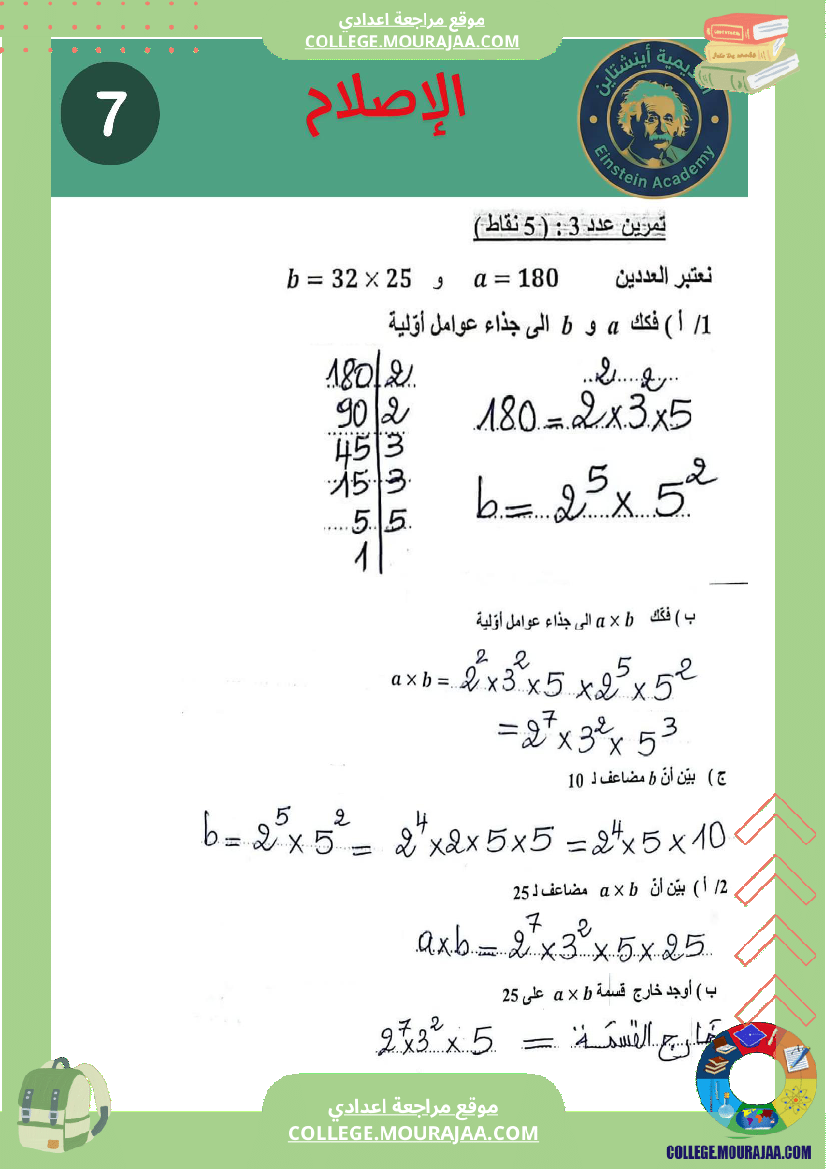 موقع مراجعة اعدادي
COLLEGE.MOURAJAA.COM
7
الإصلاح
أكاديمية أينشتاين
Einstein Academy
تمرين عدد 3 : ( 5 نقاط )
نعتبر العددين a = 180 و b = 32 × 25
1/ أ ) فكك a و b الى جذاء عوامل أوّلية
180 | 2
90 | 2
45 | 3
15 | 3
5 | 5
1 |
180 = 2² × 3² × 5
b = 2⁵ × 5²
ب ) فكّك a × b الى جذاء عوامل أوّلية
a × b = 2² × 3² × 5 × 2⁵ × 5²
= 2⁷ × 3² × 5³
ج ) بيّن أنّ b مضاعف لـ 10
b = 2⁵ × 5² = 2⁴ × 2 × 5 × 5 = 2⁴ × 5 × 10
2/ أ ) بيّن أنّ a × b مضاعف لـ 25
a × b = 2⁷ × 3² × 5 × 25
ب ) أوجد خارج قسمة a × b على 25
خارج القسمة = 2⁷ × 3² × 5
موقع مراجعة اعدادي
COLLEGE.MOURAJAA.COM
COLLEGE.MOURAJAA.COM